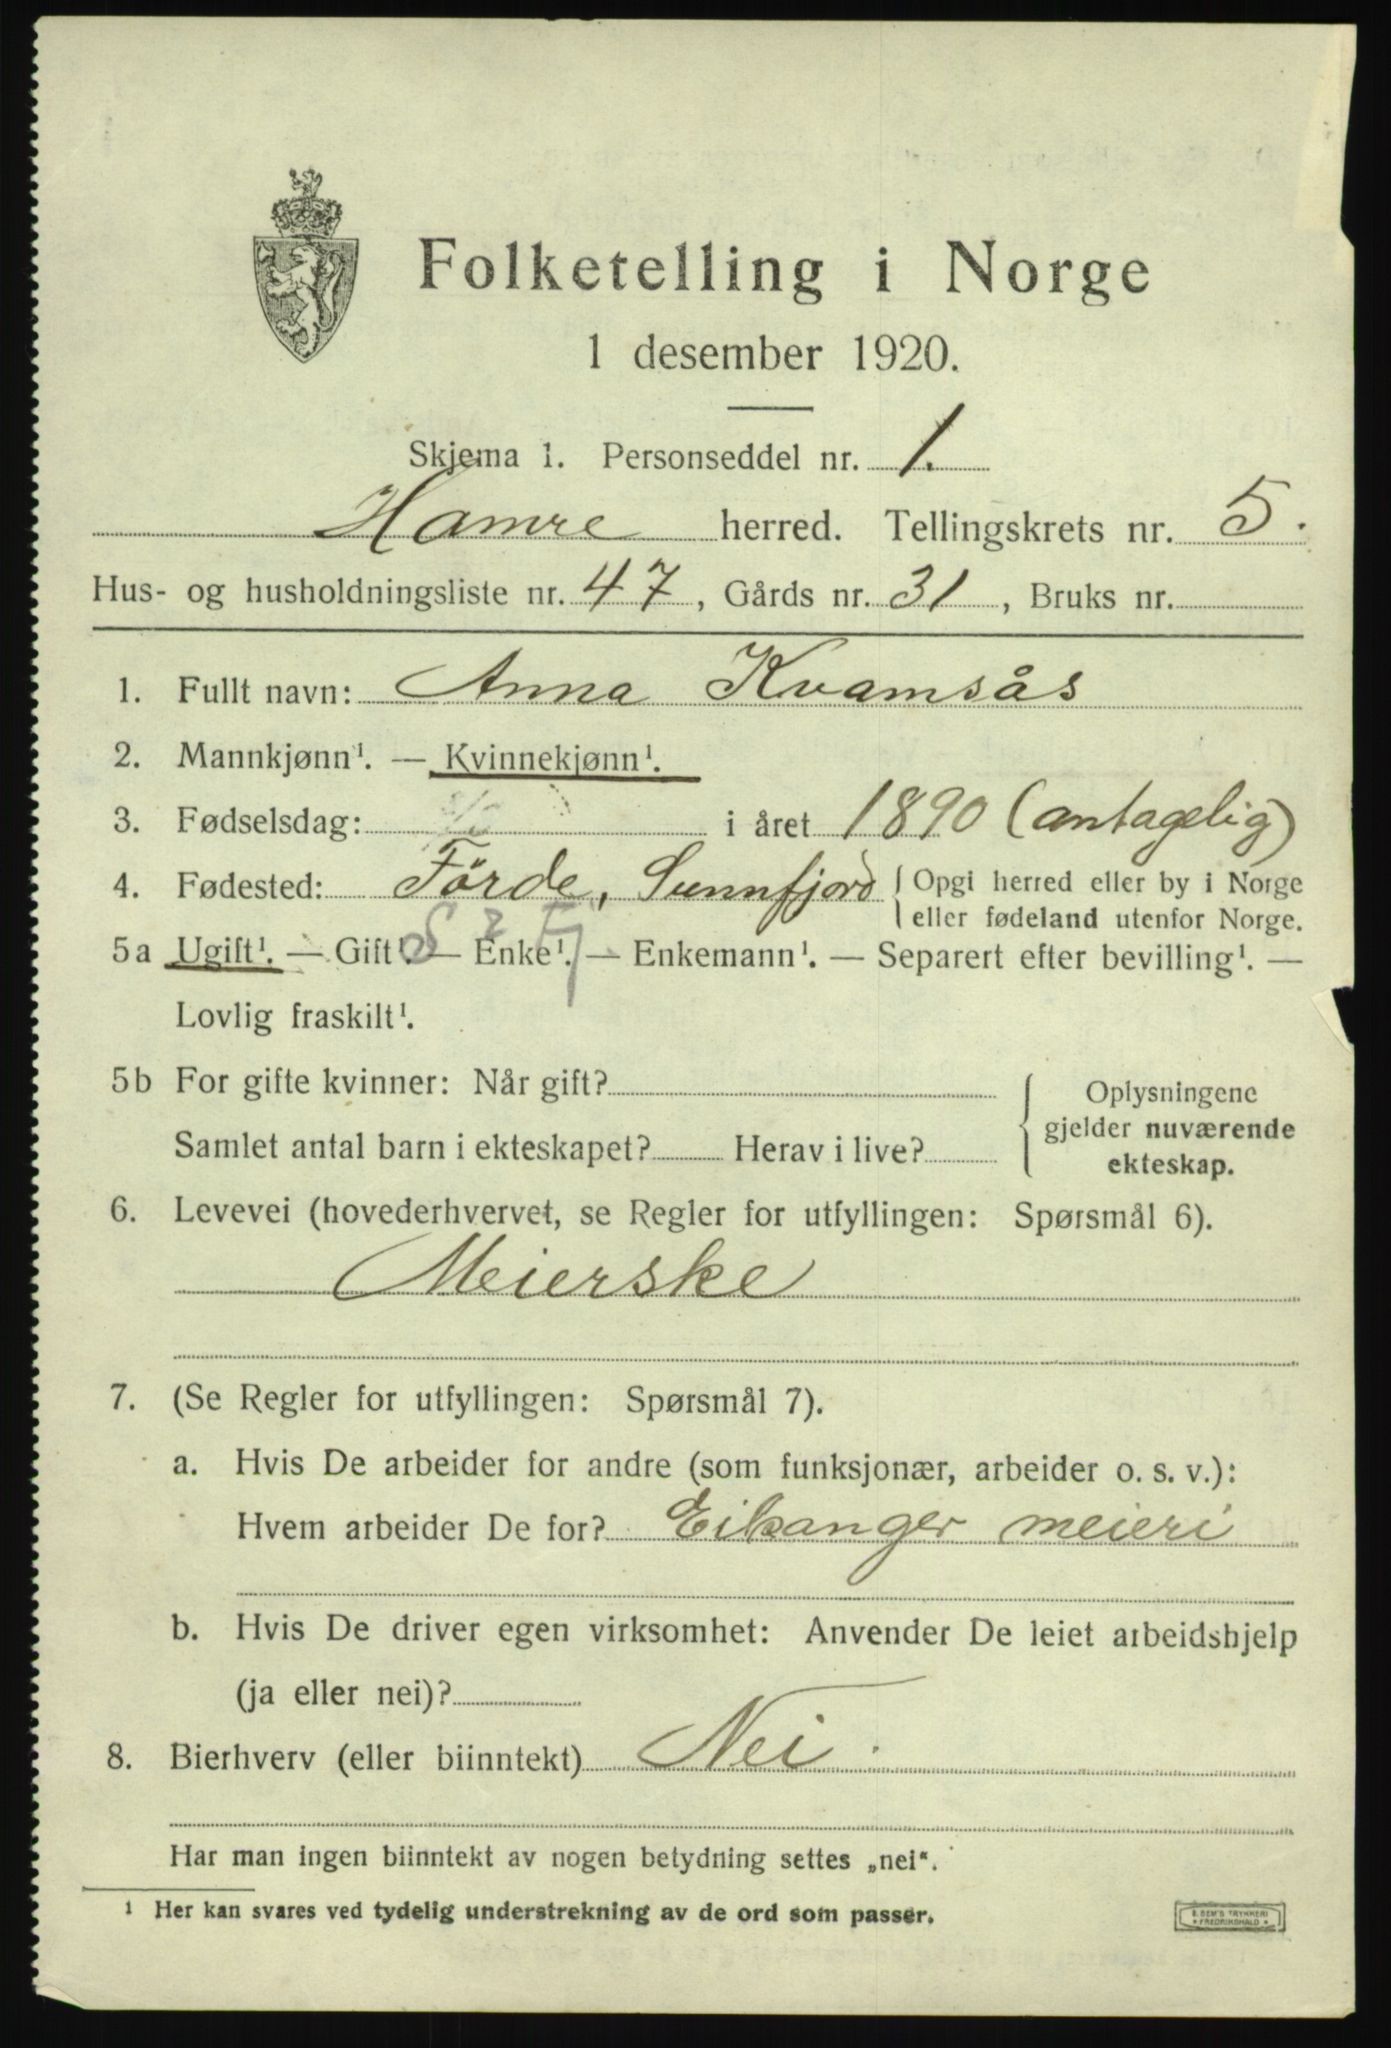 Folketelling i Norge
1 desember 1920.
Skjema 1. Personseddel nr. 1.
Hamre herred. Tellingskrets nr. 5.
Hus- og husholdningsliste nr. 47, Gårds nr. 31, Bruks nr.
1. Fullt navn: Anna Kvamsås
2. Mannkjønn¹. — Kvinnekjønn¹.
3. Fødselsdag: i året 1890 (antagelig)
4. Fødested: Förde, Sunnfjord { Opgi herred eller by i Norge
eller fødeland utenfor Norge.
S & Fj
5a Ugift¹. — Gift¹. — Enke¹. — Enkemann¹. — Separert efter bevilling¹. —
Lovlig fraskilt¹.
5b For gifte kvinner: Når gift?
Samlet antal barn i ekteskapet? Herav i live?
{ Oplysningene
gjelder nuværende
ekteskap.
6. Levevei (hovederhvervet, se Regler for utfyllingen: Spørsmål 6).
Meierske
7. (Se Regler for utfyllingen: Spørsmål 7).
a. Hvis De arbeider for andre (som funksjonær, arbeider o. s. v.):
Hvem arbeider De for? Eikanger meieri
b. Hvis De driver egen virksomhet: Anvender De leiet arbeidshjelp
(ja eller nei)?
8. Bierhverv (eller biinntekt) Nei.
Har man ingen biinntekt av nogen betydning settes „nei“.
¹ Her kan svares ved tydelig understrekning av de ord som passer.
E. SEM'S TRYKKERI
* FREDRIKSHALD *